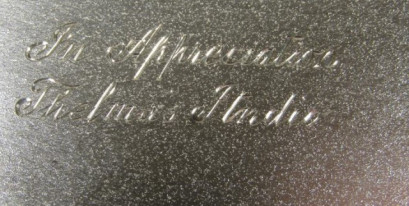 In Appreciation
Thelma's Studio